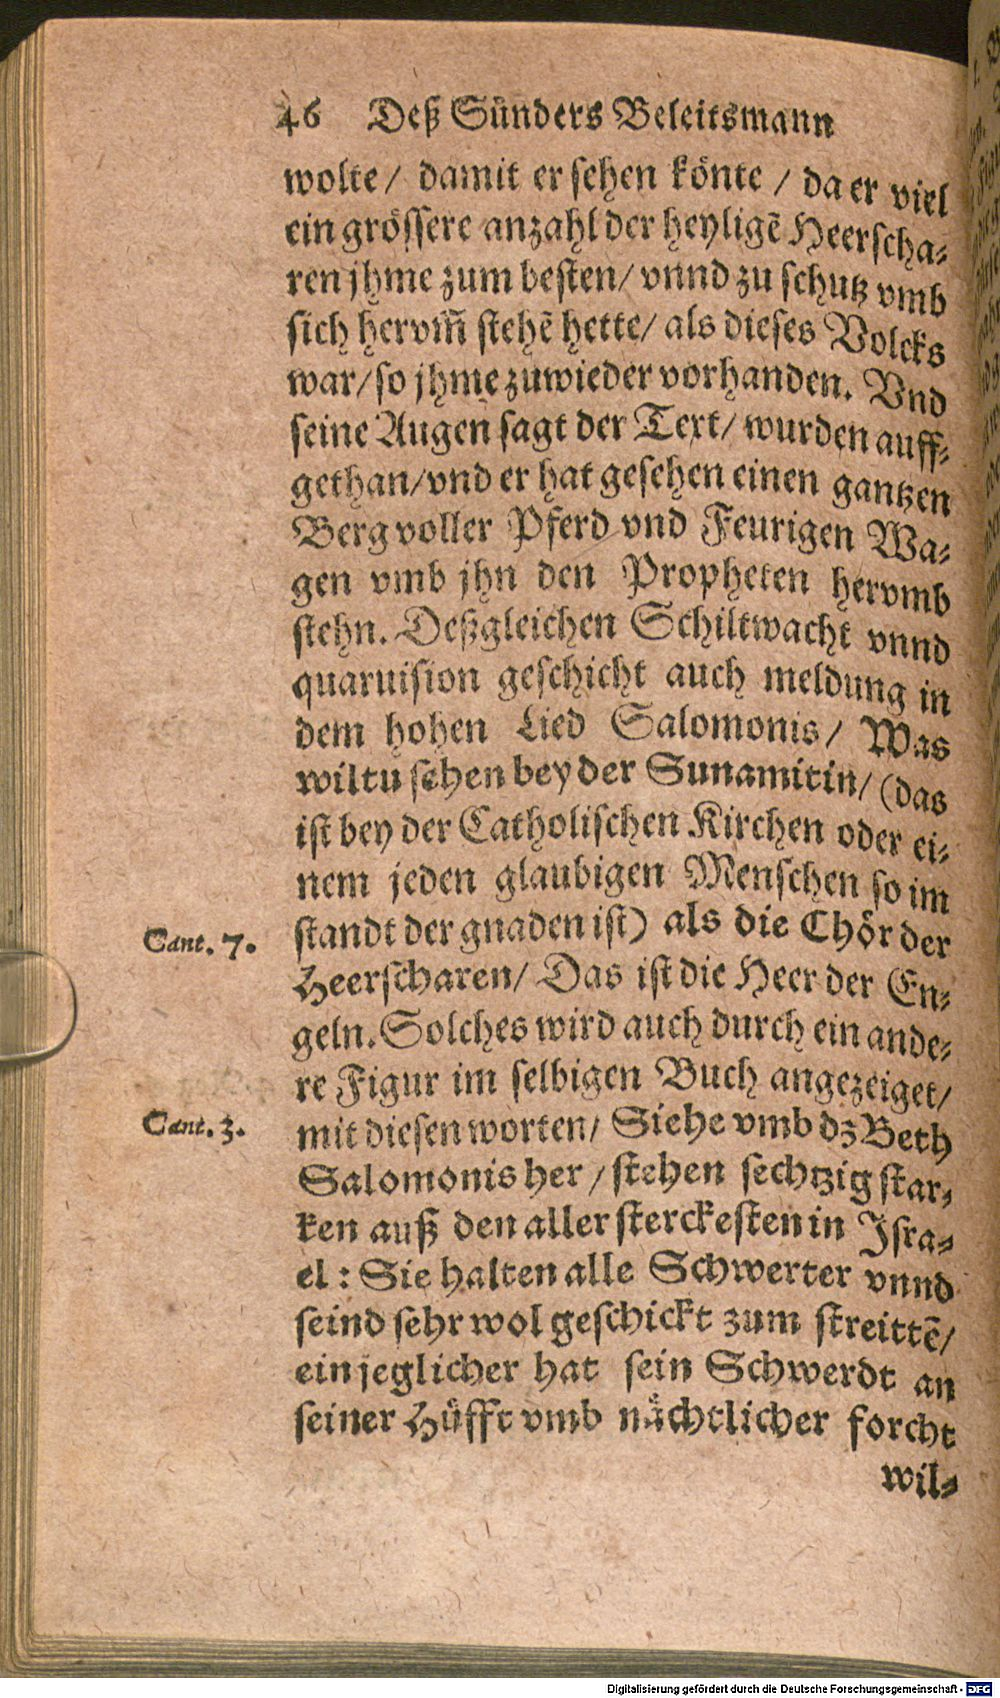 46 Deß Sünders Beleitsmann
wolte / damit er sehen könte / da er viel
ein grössere anzahl der heyligē Heerscha⸗
ren jhme zum besten / vnnd zu schutz vmb
sich hervm̃ stehē hette / als dieses Volcks
war / so jhme zuwieder vorhanden. Vnd
seine Augen sagt der Text / wurden auff⸗
gethan / vnd er hat gesehen einen gantzen
Berg voller Pferd vnd Feurigen Wa⸗
gen vmb jhn den Propheten hervmb
stehn. Deßgleichen Schiltwacht vnnd
quaruision geschicht auch meldung in
dem hohen Lied Salomonis / Was
wiltu sehen bey der Sunamitin / (das
ist bey der Catholischen Kirchen oder ei⸗
nem jeden glaubigen Menschen so im
Cant. 7. standt der gnaden ist) als die Chör der
Heerscharen / Das ist die Heer der En⸗
geln. Solches wird auch durch ein ande⸗
re Figur im selbigen Buch angezeiget /
Cant. 3. mit diesen worten / Siehe vmb dz Beth
Salomonis her / stehen sechtzig star⸗
ken auß den aller sterckesten in Isra⸗
el : Sie halten alle Schwerter vnnd
seind sehr wol geschickt zum streittē /
ein jeglicher hat sein Schwerdt an
seiner Hüfft vmb nächtlicher forcht
wil⸗
Digitalisierung gefördert durch die Deutsche Forschungsgemeinschaft - DFG